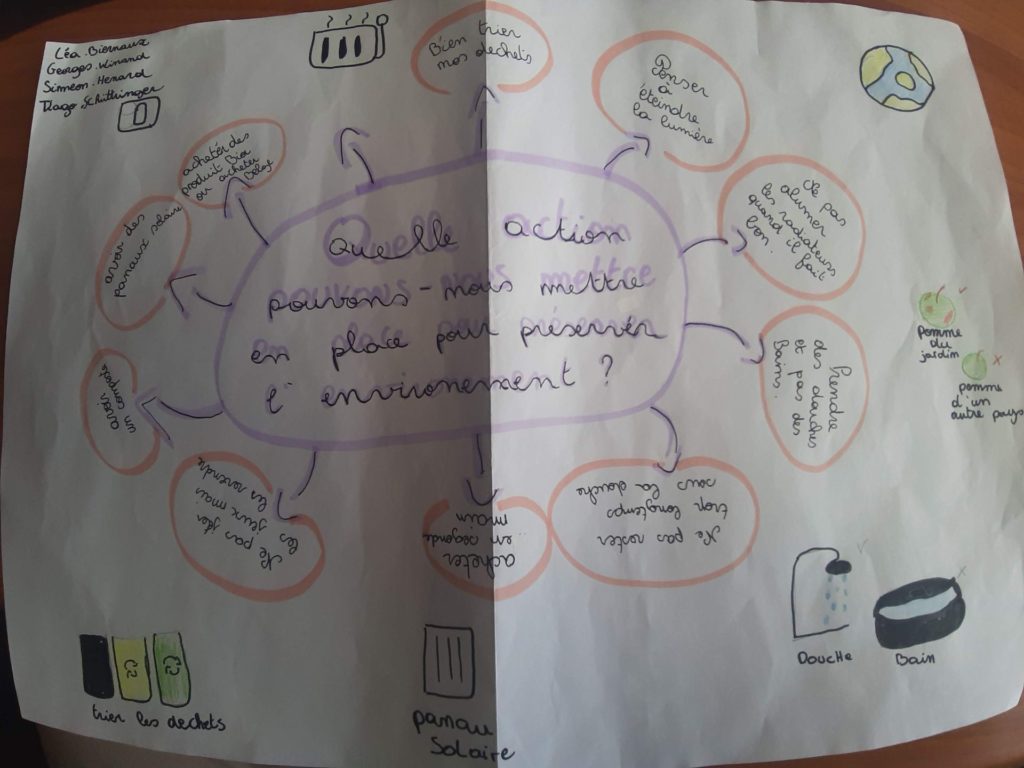 Léa. Biernaux
Georges. Winand
Siméon. Henard
Tiago. Schuttringer
Quelle action
pouvons-nous mettre
en place pour préserver
l'environement ?
Bien trier
nos dechets
Penser
à
éteindre
la lumière
Ne pas
alumer
les radiateurs
quand il fait
bon.
Prendre
des douches
et pas des
Bains.
Ne pas rester
tron longtemps
sous la douche
acheter
en segonde
main
Ne pas jéter
les jeux mais
les revendre
avoir
un composte
avoir des
paneaux solaire
achetér des
produit Bio
ou acheter
Belge
pomme
du
jardin
pomme
d'un
autre pays
Douche
Bain
panau
Solaire
trier les dechets